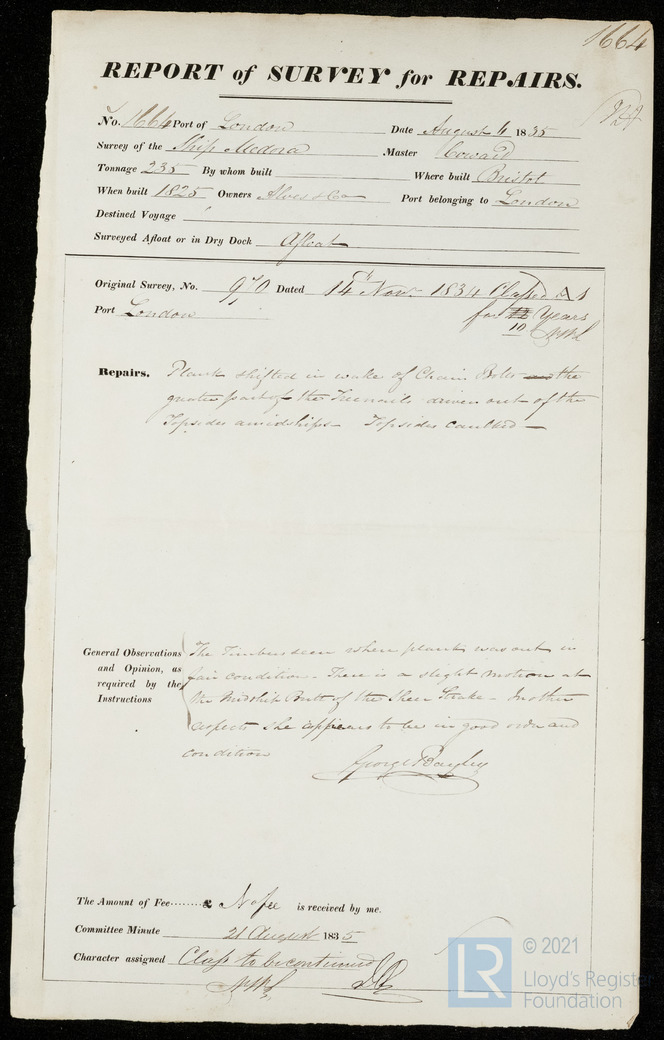 1664
REPORT of SURVEY for REPAIRS.
No. 1664 Port of London Date August 6 1835
Survey of the Ship Medora Master Coward
Tonnage 235 By whom built Where built Bristol
When built 1825 Owners Alves & Co Port belonging to London
Destined Voyage
Surveyed Afloat or in Dry Dock Afloat
Original Survey, No. 970 Dated 14th Novr. 1834 Classed A 1
Port London for 12 Years
10
Repairs. Plank shifted in wake of Chain Bolts and the
greater part of the Treenails driven out of the
Topsides amidships - Topsides caulked -
General Observations and Opinion, as required by the Instructions
The Timbers seen where plank was out in
fair condition - There is a slight motion at
the Midship Butt of the Sheer Strake - In other
respects she appears to be in good order and
condition
George Bayley
The Amount of Fee........£ No fee is received by me.
Committee Minute 21 August 1835
Character assigned Class to be continued
LR
© 2021
Lloyd's Register
Foundation